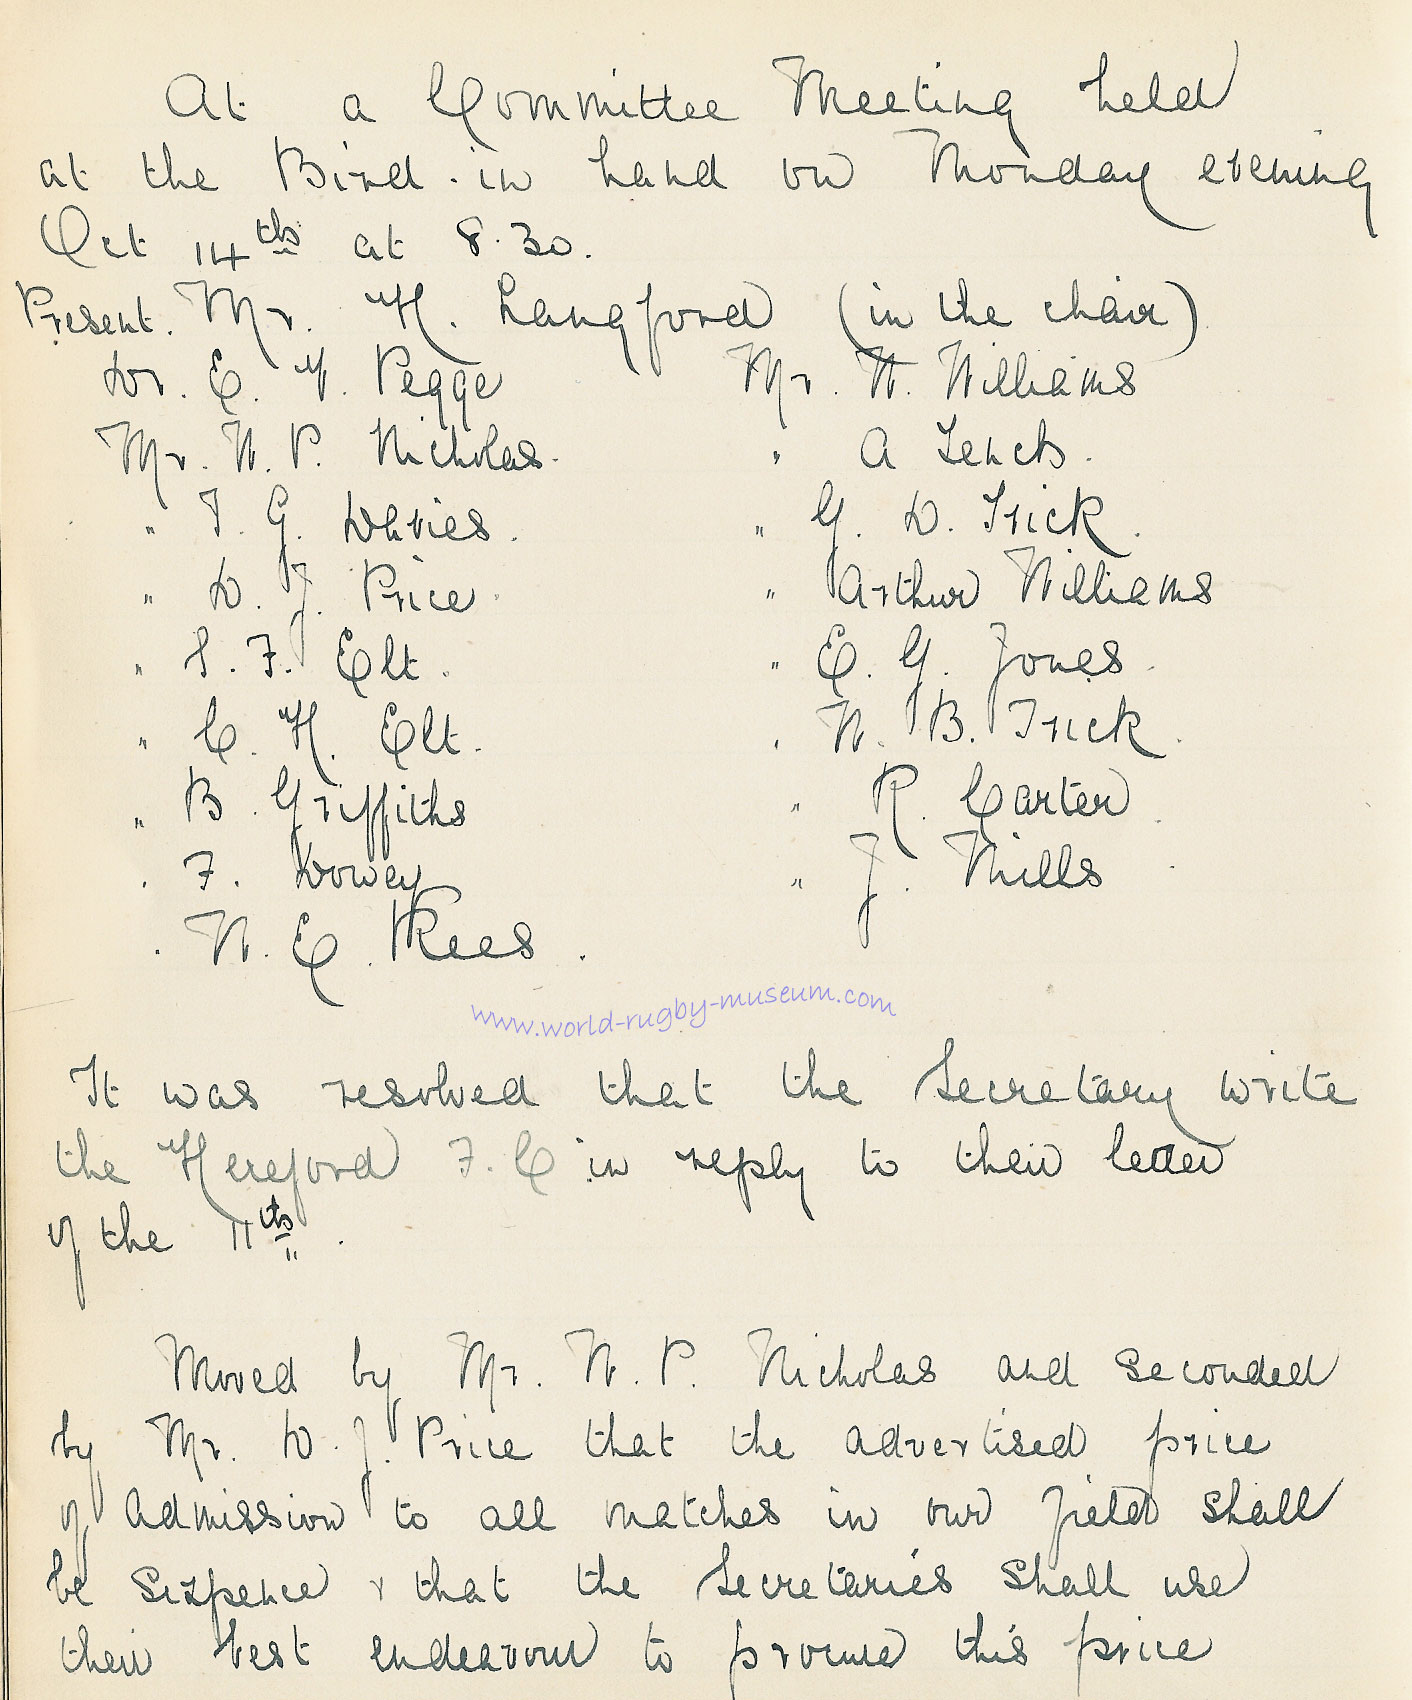 At a Committee Meeting held
at the Bird-in hand on Monday evening
Oct 14th at 8.30.
Present. Mr. H. Langford (in the chair)
Dr. E. V. Pegge Mr. W. Williams
Mr. W. P. Nicholas. " A Lench.
" T. G. Davies. " G. D. Trick.
" D. J. Price. " Arthur Williams
" S. F. Elt. " E. G. Jones.
" C. H. Elt. " W. B. Trick.
" B. Griffiths " R. Carter.
" F. Dovey " J. Mills
" W. E. Rees.
www.world-rugby-museum.com
It was resolved that the Secretary write
the Hereford F. C in reply to their letter
of the 11th.
Moved by Mr. W. P. Nicholas and seconded
by Mr. D. J. Price that the advertised price
of admission to all matches in our field shall
be sixpence & that the Secretaries shall use
their best endeavour to procure this price